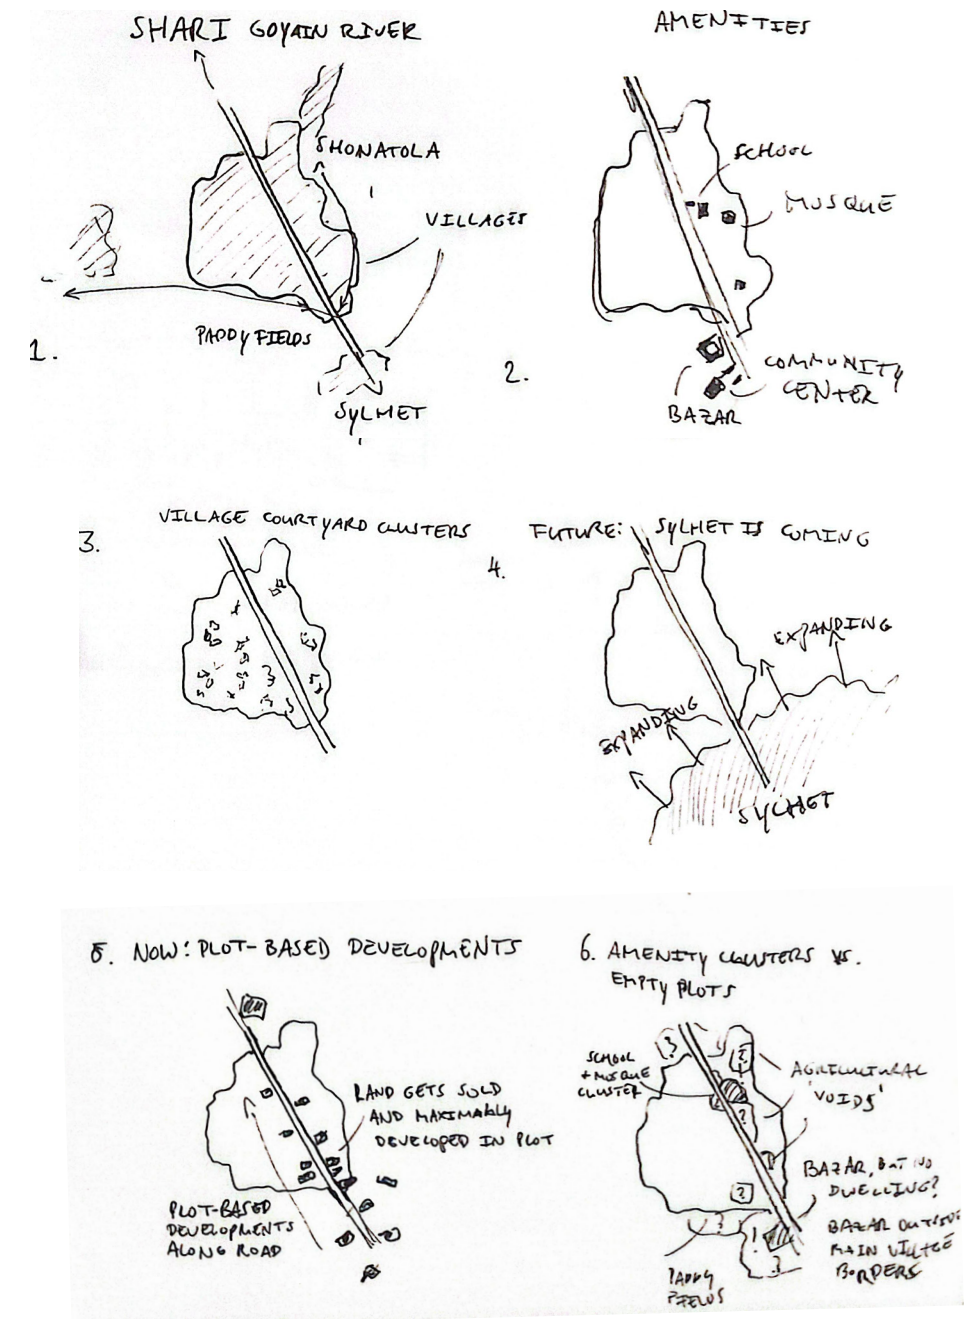 SHARI GOYAIN RIVER
SHONATOLA
VILLAGES
PADDY FIELDS
1.
SYLHET
AMENITIES
SCHOOL
MOSQUE
2.
COMMUNITY
CENTER
BAZAR
3.
VILLAGE COURTYARD CLUSTERS
4.
FUTURE: SYLHET IS COMING
EXPANDING
EXPANDING
SYLHET
5. NOW: PLOT-BASED DEVELOPMENTS
LAND GETS SOLD
AND MAXIMABLY
DEVELOPED IN PLOT
PLOT-BASED
DEVELOPMENTS
ALONG ROAD
6. AMENITY CLUSTERS VS.
EMPTY PLOTS
?
?
SCHOOL
+ MOSQUE
CLUSTER
AGRICULTURAL
'VOIDS'
?
BAZAR, BUT NO
DWELLING?
?
?
!
?
BAZAR OUTSIDE
MAIN VILLAGE
BORDERS
PADDY
FIELDS